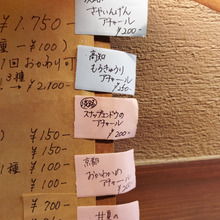 ¥1.750
種 -¥100)
回おかわり可
3種
→ ¥2,100-
¥150-
¥150-
1種 ¥100-
¥100-
¥700-
さやいんげん
アチャール
¥200-
高知
もろきゅうり
アチャール
¥250-
淡路
スナップエンドウの
アチャール
¥200-
京都
おかわかめ
アチャール